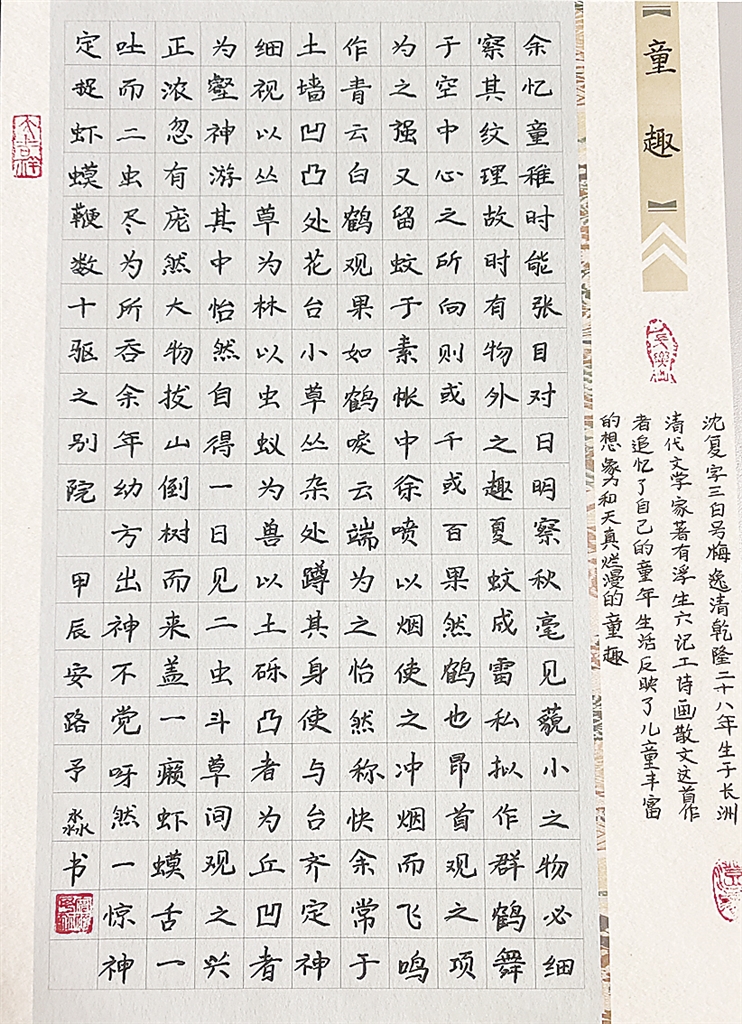 童趣
沈复字三白号梅逸清乾隆二十八年生于长洲
清代文学家著有浮生六记工诗画散文这首作
者追忆了自己的童年生活反映了儿童丰富
的想象力和天真烂漫的童趣
余忆童稚时能张目对日明察秋毫见藐小之物必细
察其纹理故时有物外之趣夏蚊成雷私拟作群鹤舞
于空中心之所向则或千或百果然鹤也昂首观之项
为之强又留蚊于素帐中徐喷以烟使之冲烟而飞鸣
作青云白鹤观果如鹤唳云端为之怡然称快余常于
土墙凹凸处花台小草丛杂处蹲其身使与台齐定神
细视以丛草为林以虫蚁为兽以土砾凸者为丘凹者
为壑神游其中怡然自得一日见二虫斗草间观之兴
正浓忽有庞然大物拔山倒树而来盖一癞虾蟆舌一
吐而二虫尽为所吞余年幼方出神不觉呀然一惊神
定捉虾蟆鞭数十驱之别院 甲辰安路予淼书
大吉祥